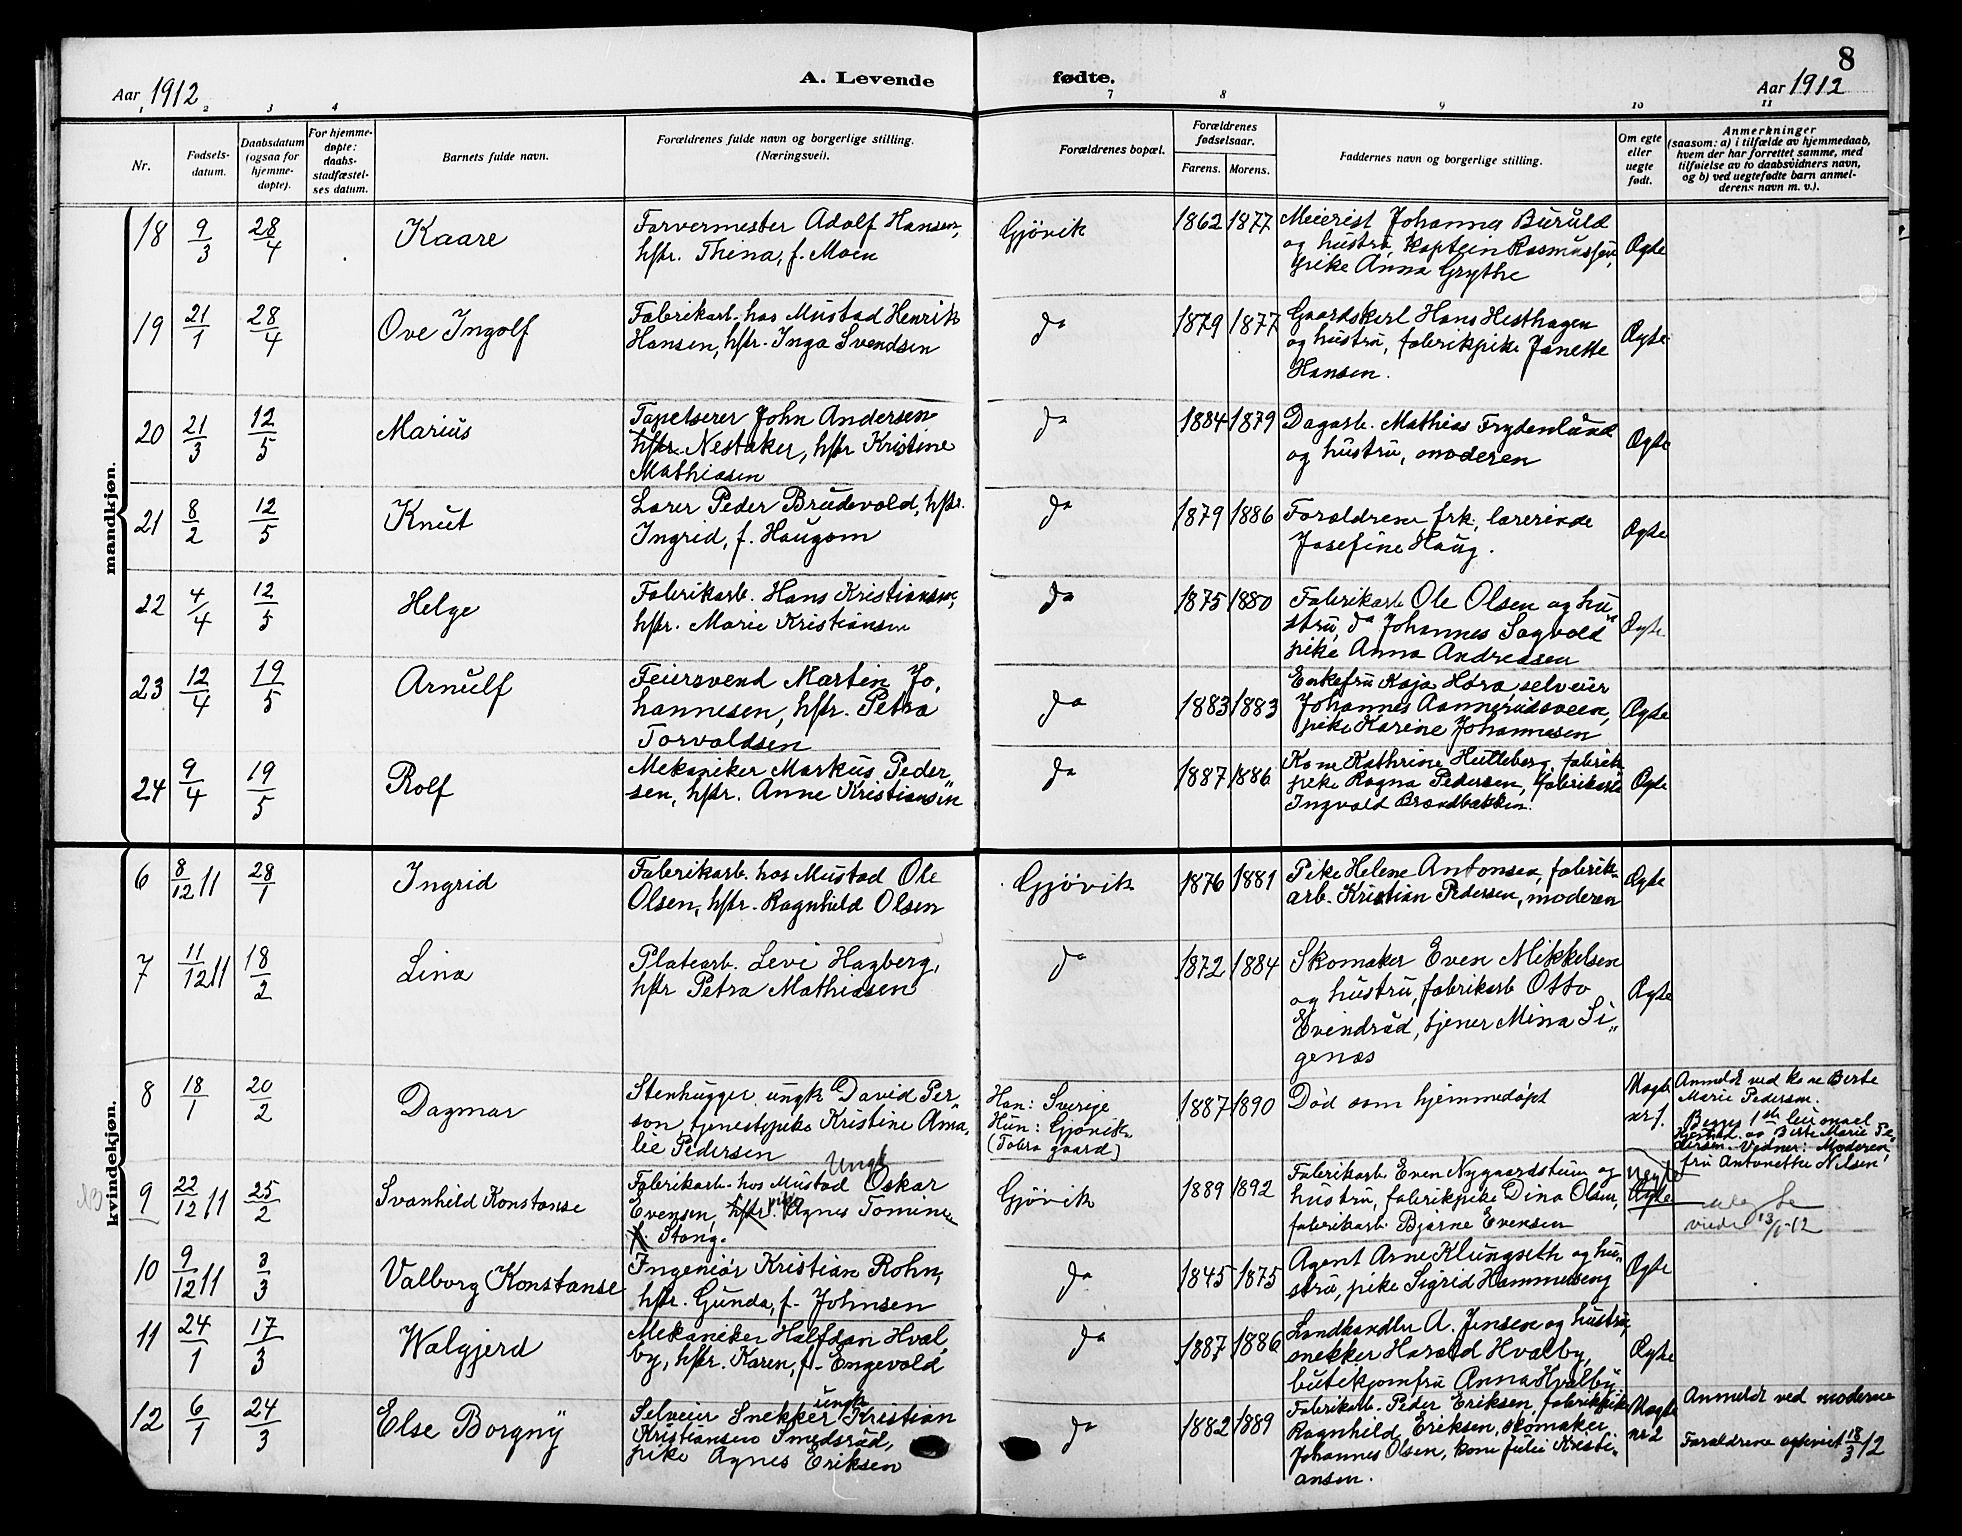 8
Aar 1912
A. Levende
fødte.
Aar 1912
1 2 3 4 7 8 9 10 11
Nr.
Fødsels-
datum.
Daabsdatum
(ogsaa for
hjemme-
døpte).
For hjemme-
døpte:
daabs-
stadfæstel-
ses datum.
Barnets fulde navn.
Forældrenes fulde navn og borgerlige stilling.
(Næringsvei).
Forældrenes bopæl.
Forældrenes
fødselsaar.
Farens. Morens.
Faddernes navn og borgerlige stilling.
Om egte
eller
uegte
født.
Anmerkninger
(saasom: a) i tilfælde av hjemmedaab,
hvem der har forrettet samme, med
tilføielse av to daabsvidners navn,
og b) ved uegtefødte barn anmel-
derens navn m. v.).
mandkjøn.
18 9/3 28/4 Kaare
Farvermester Adolf Hansen,
hstr. Thina, f. Moen
Gjövik 1862 1877
Meierist Johanna Buruld
og hustru, kaptein Rasmussen,
pike Anna Grythe
Ægte
19 21/1 28/4 Ove Ingolf
Fabrikarb. hos Mustad Henrik
Hansen, hstr. Inga Svendsen
da 1879 1877
Gaardskarl Hans Hesthagen
og hustru, fabrikpike Janette
Hansen.
Ægte
20 21/3 12/5 Marius
Tapetserer John Andersen
hstr. Nestaker, hstr Kristine
Mathiasen
da 1884 1879
Dagarb. Mathias Frydenlund
og hustru, moderen
Ægte
21 8/2 12/5 Knut
Lærer Peder Brudevold, hstr.
Ingrid, f. Haugom
da 1879 1886
Forældrene, frk. lærerinde
Josefine Haug.
Ægte
22 4/4 12/5 Helge
Fabrikarb. Hans Kristiansen,
hstr. Marie Kristiansen
da 1875 1880
Fabrikarb Ole Olsen og hu-
stru, da Johannes Sagvold
pike Anna Andreasen
Ægte
23 12/4 19/5 Arnulf
Feiersvend Martin Jo-
hannesen, hstr. Petra
Torvaldsen
da 1883 1883
Enkefru Kaja Hora, selveier
Johannes Aannerudsveen,
pike Karine Johannesen
Ægte
24 9/4 19/5 Rolf
Mekaniker Markus Peder-
sen, hstr. Anne Kristiansen
da 1887 1886
Kone Kathrine Hutteberg, fabrik
pike Ragna Pedersen, fabrikarb
Ingvald Brændbakken.
Ægte
kvindekjøn.
6 8/12 11 28/1 Ingrid
Fabrikarb. hos Mustad Ole
Olsen, hstr. Ragnhild Olsen
Gjövik 1876 1881
Pike Helene Antonsen, fabrik-
arb. Kristian Pedersen, moderen
Ægte
7 11/12 11 18/2 Lina
Platearb. Levi Hagberg,
hstr Petra Mathiasen
da 1872 1884
Skomaker Even Mikkelsen
og hustru, fabrikarb Otto
Evindrud, tjener Mina Si-
genæs
Ægte
8 18/1 20/2 Dagmar
Stenhugger, ungk David Per-
son, tjenestepike Kristine Ama-
lie Pedersen
Han: Sverige
Hun: Gjövik
gaard)
1887 1890
Död som hjemmedöpt
Uægte
nr 1.
Anmeldt ved kone Berte
Marie Pedersen.
Begges 1ste leiermaal
Hjemmed. av Berte Marie Pe-
dersen. Vidner: Moderen,
fru Antonette Nilsen
13
9 22/12 11 25/2 Svanhild Konstanse
Ungk
Fabrikarb. hos Mustad Oskar
Evensen, hstr. pike Agnes Tomine
f. Stang.
Gjövik 1889 1892
Fabrikarb. Even Nygaardstuen og
hustru, fabrikpike Dina Olsen,
fabrikarb. Bjarne Evensen
Uægte
Ægte
10 9/12 11 3/3 Valborg Konstanse
Ingeniör Kristian Rohn,
hstr. Gunda, f. Johnsen
da 1845 1875
Agent Arne Klungseth og hu-
stru, pike Sigrid Hammerseng
Ægte
11 24/1 17/3 Walgjerd
Mekaniker Halfdan Hval-
by, hstr. Karen, f. Engevold
da 1887 1886
Landhandler A. Jensen og hustru,
snekker Harald Hvalby,
butikjomfru Anna Hvalby.
Ægte
12 6/1 24/3 Else Borgny
ungk
Selveier Snekker Kristian
Kristiansen Smedsrud,
pike Agnes Eriksen
da 1882 1889
Fabrikarb. Peder Eriksen, fabrikpike
Ragnhild Eriksen, skomaker
Johannes Olsen, kone Julie Kristi-
ansen.
Uægte
nr 2
Anmeldt ved moderen
Forældrene egteviet 18/3 12